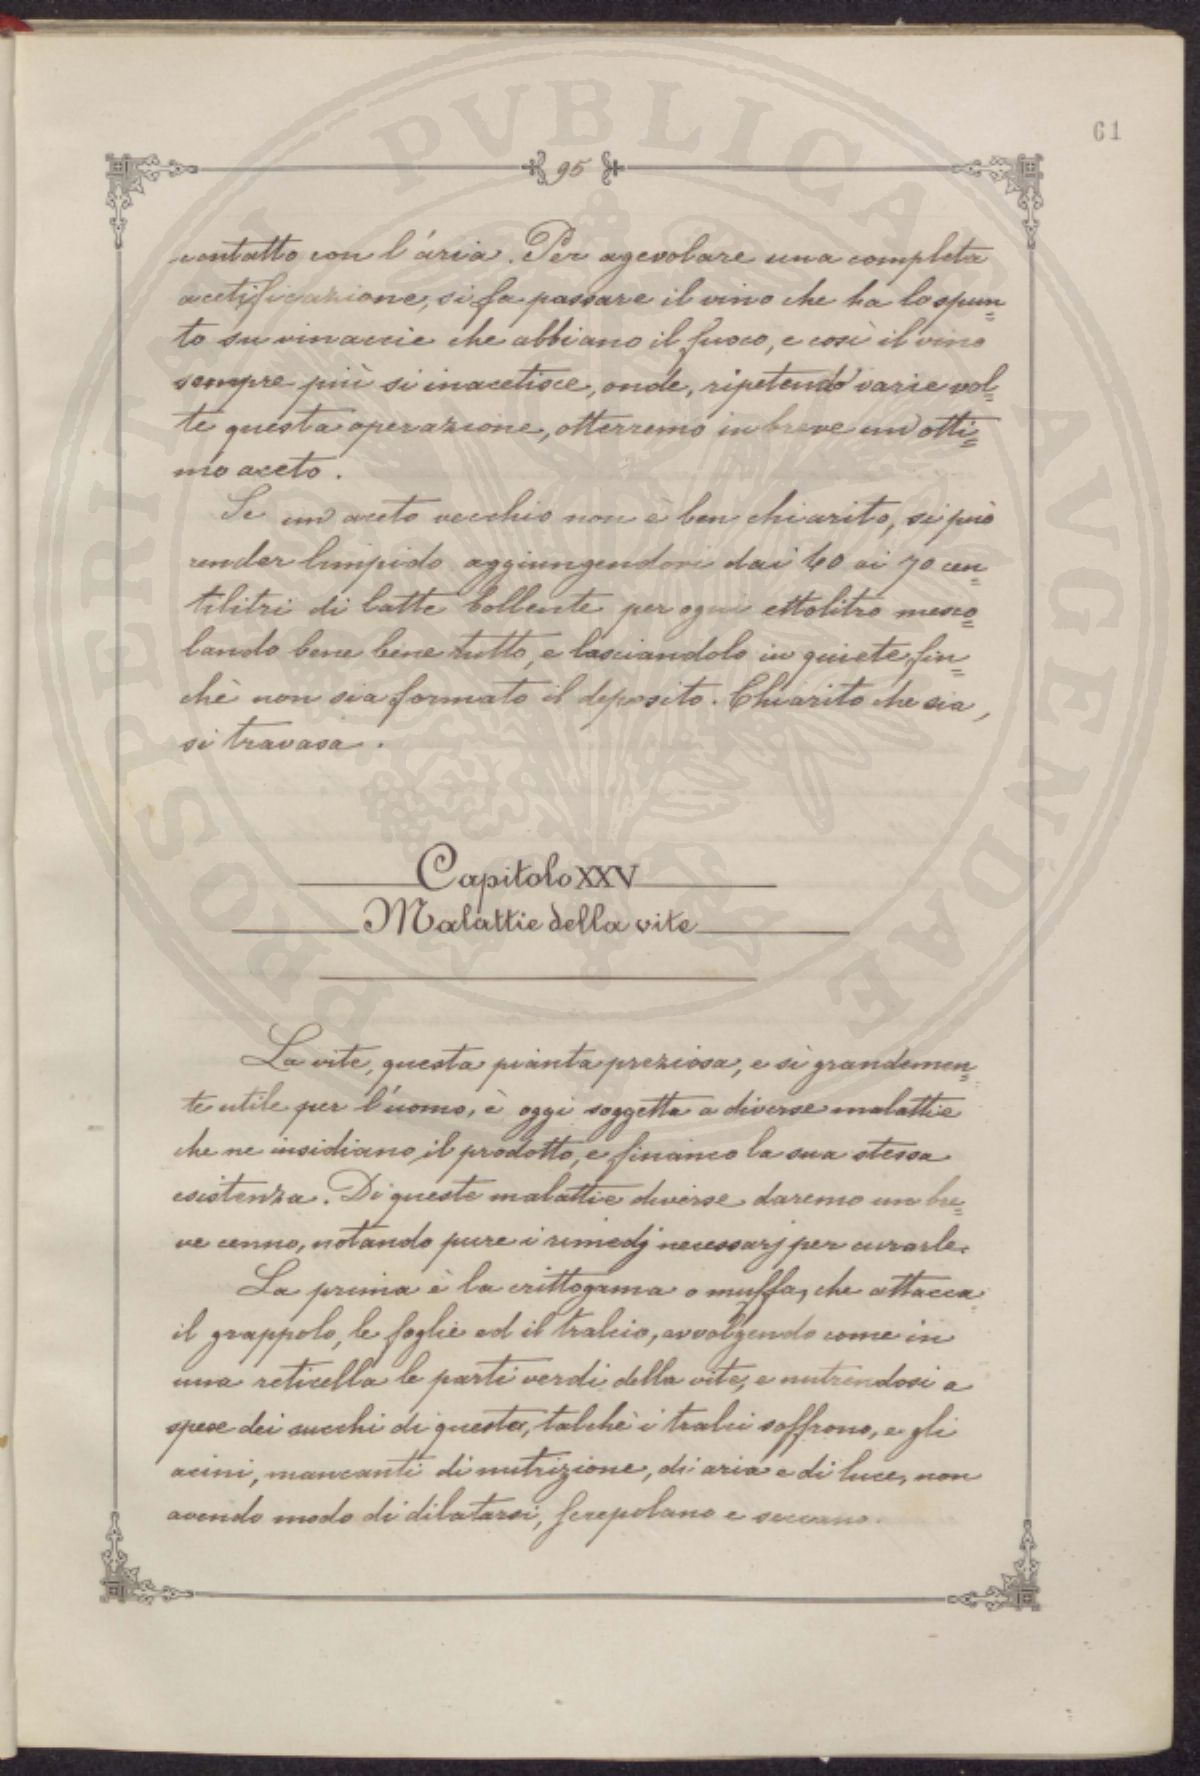 61
95
contatto con l'aria. Per agevolare una completa
acetificazione, si fa passare il vino che ha lo spun=
to su vinaccie che abbiano il fuoco, e così il vino
sempre più si inacetisce, onde, ripetendo varie vol=
te questa operazione, otterremo in breve un otti=
mo aceto.
Se un aceto vecchio non è ben chiarito, si può
render limpido aggiungendovi dai 60 ai 70 cen=
tilitri di latte bollente per ogni ettolitro mesco=
lando bene bene tutto, e lasciandolo in quiete fin=
chè non sia formato il deposito. Chiarito che sia,
si travasa.
Capitolo XXV
Malattie della vite
La vite, questa pianta preziosa, e sì grandemen=
te utile per l'uomo, è oggi soggetta a diverse malattie
che ne insidiano il prodotto, e financo la sua stessa
esistenza. Di queste malattie diverse daremo un bre=
ve cenno, notando pure i rimedj necessarj per curarle.
La prima è la crittogama o muffa, che attacca
il grappolo, le foglie ed il tralcio, avvolgendo come in
una reticella le parti verdi della vite, e nutrendosi a
spese dei succhi di questa, talchè i tralci soffrono, e gli
acini, mancanti di nutrizione, di aria e di luce, non
avendo modo di dilatarsi, screpolano e seccano.
PROSPERITATI PUBLICAE AUGENDAE